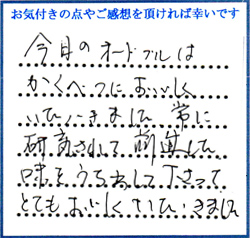 お気付きの点やご感想を頂ければ幸いです
今日のオードブルは
かくべつにおいしく
いただきました 常に
研究されて 前進した
味をうちだして下さって
とてもおいしくいただきました